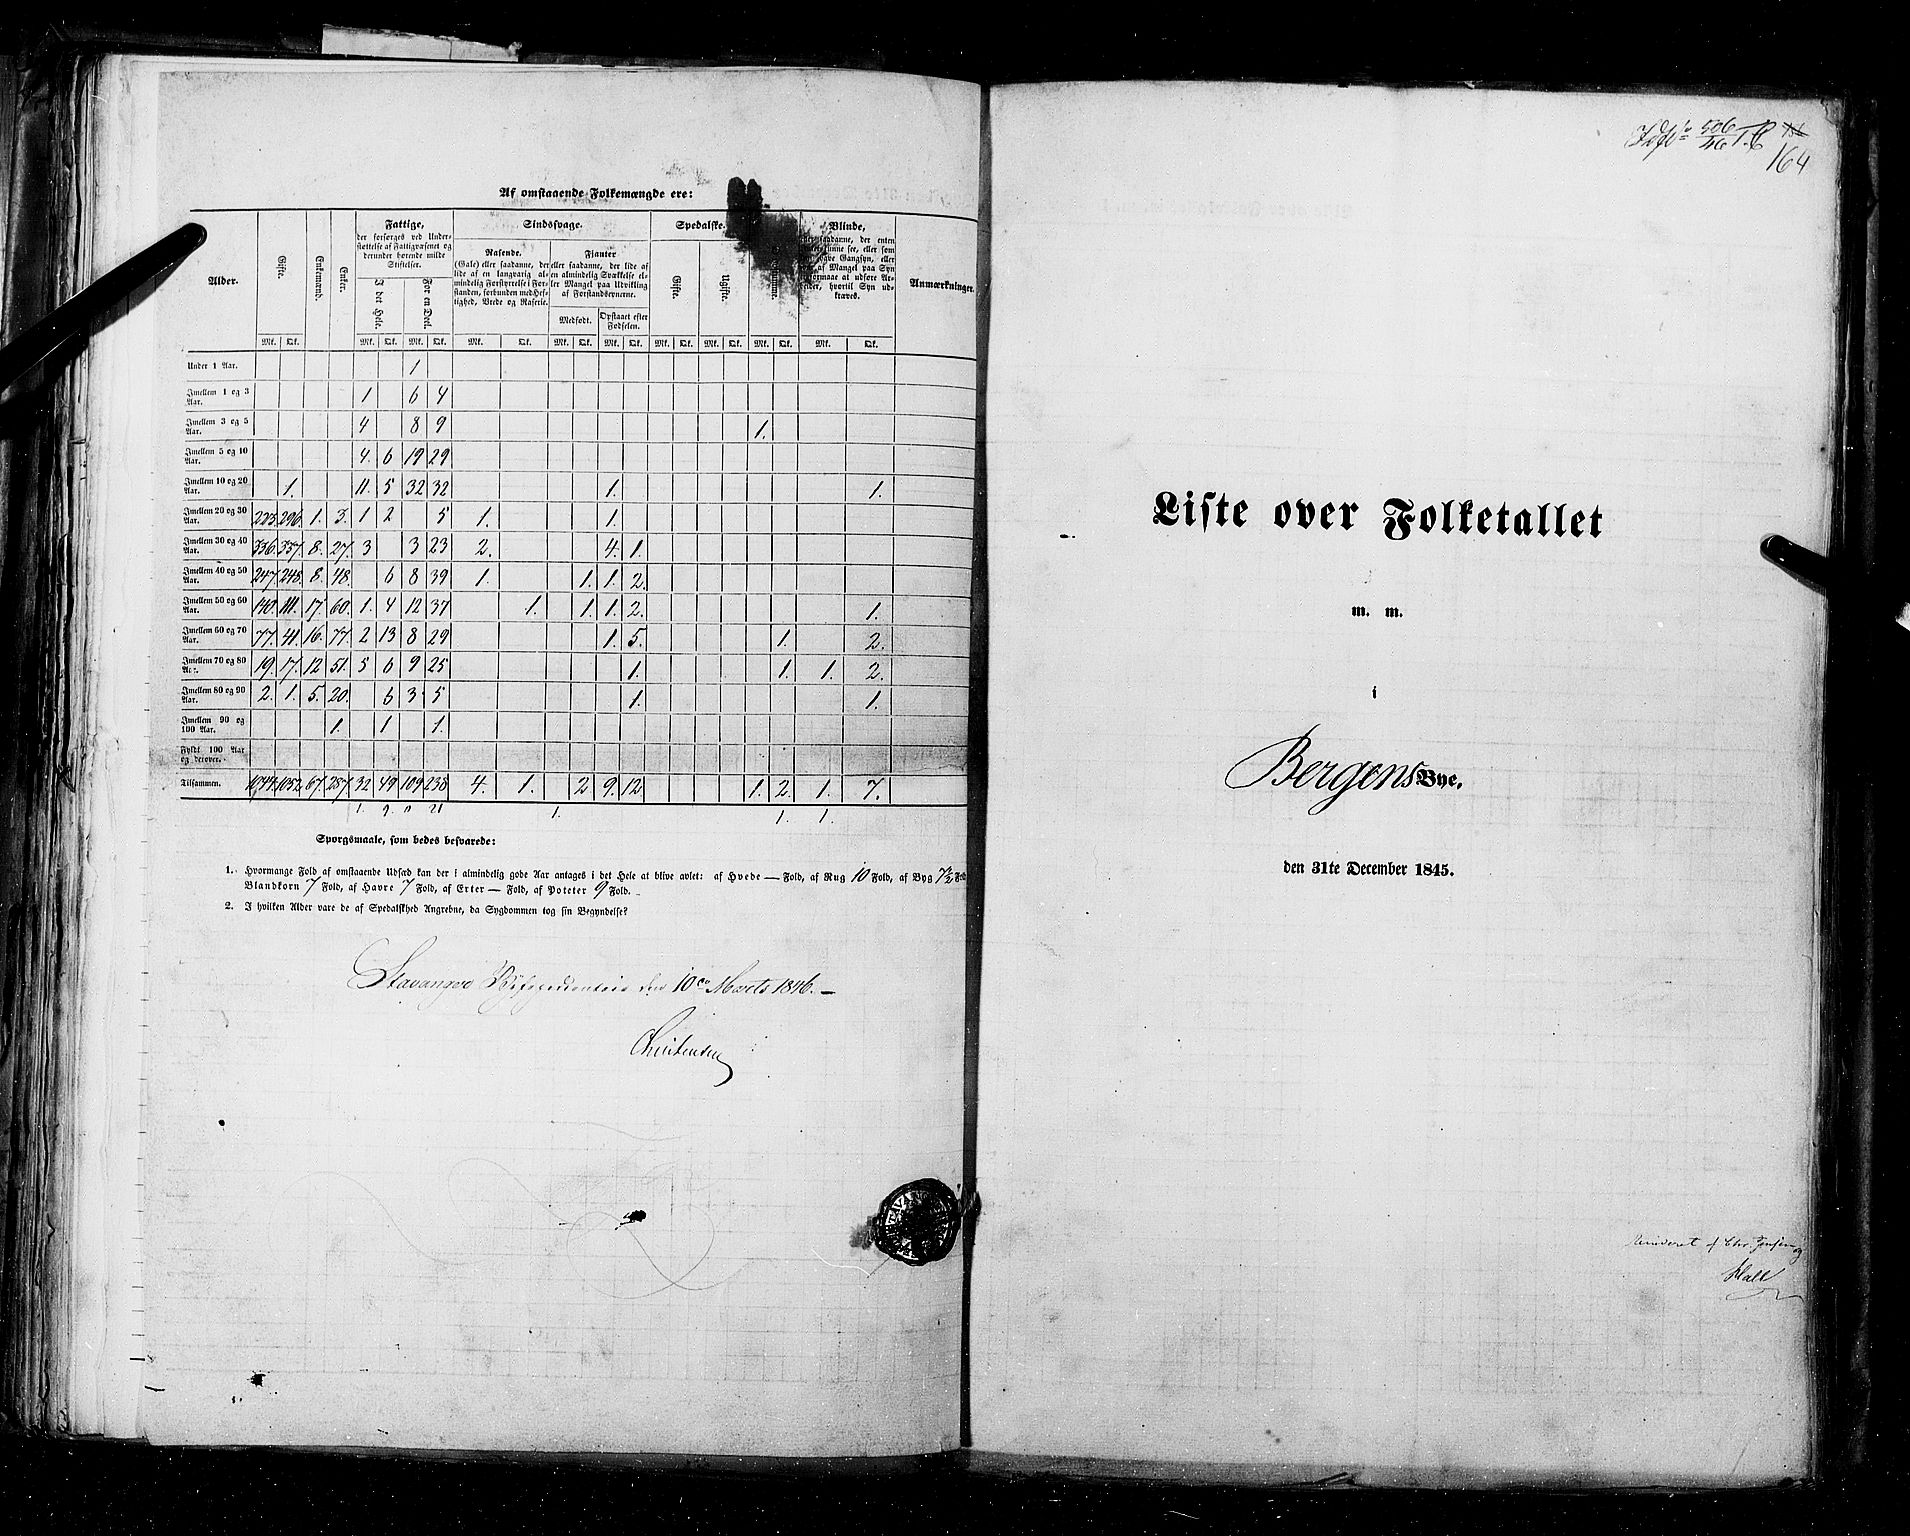 Af omstaaende Folkemængde ere:
Alder. Gifte. Enkemænd. Enker. Fattige, der forsørges ved Understøttelse af Fattigvæsenet og derunder hørende milde Stiftelser. Sindssvage. Spedalske. Blinde, Anmærkninger.
I det Hele. For en Deel. Rasende. (Gale) eller saadanne, der lide af en langvarig almindelig Forstyrrelse i Forstanden, forbunden med Heftighed, Vrede og Raserie. Fianter eller saadanne, der lide af en almindelig Svækkelse eller Mangel paa Udvikling af Forstandsevnerne. Gifte. Ugifte.
Medfødt. Opstaaet efter Fødselen.
Mk. Qk. Mk. Qk. Mk. Qk. Mk. Qk. Mk. Qk. Mk. Qk. Mk. Qk. Mk. Qk. Mk. Qk. Mk. Qk.
Under 1 Aar. 1
Imellem 1 og 3 Aar. 1 6 4
Imellem 3 og 5 Aar. 4 8 9 1.
Imellem 5 og 10 Aar. 4. 6 19 29
Imellem 10 og 20 Aar. 1. 11. 5 32 32 1. 1.
Imellem 20 og 30 Aar. 223. 296. 1. 3. 1 2 5 1. 1.
Imellem 30 og 40 Aar. 336. 337. 8. 27. 3 3 23 2. 4. 1.
Imellem 40 og 50 Aar. 247. 248. 8. 48. 6 8 39 1. 1. 1. 2.
Imellem 50 og 60 Aar. 140. 111. 17. 60. 1. 4 12 37 1. 1. 1. 2. 1.
Imellem 60 og 70 Aar. 77. 41. 16. 77. 2 13 8 29 1. 5. 1. 2.
Imellem 70 og 80 Aar. 19. 17. 12 51. 5 6 9 25 1. 1. 1. 2.
Imellem 80 og 90 Aar. 2. 1. 5. 20. 6 3 5 1. 1.
Imellem 90 og 100 Aar. 1. 1 1.
Fyldt 100 Aar og derover.
Tilsammen. 1044. 1052. 67. 287. 32 49 109 238 4. 1. 2 9. 12. 1. 2. 1. 7.
Spørgsmaale, som bedes besvarede:
1. Hvormange Fold af omstaaende Udsæd kan der i almindelig gode Aar antages i det Hele at blive avlet: af Hvede — Fold, af Rug 10 Fold, af Byg 7½ Fold
Blandkorn 7 Fold, af Havre 7 Fold, af Erter — Fold, af Poteter 9 Fold.
2. I hvilken Alder vare de af Spedalskhed Angrebne, da Sygdommen tog sin Begyndelse?
Stavanger den 10de Marts 1846. —
Christensen
164
Liste over Folketallet
m. m.
i
Bergens Bye.
den 31te December 1845.
Revideret af Chr. Jensen og